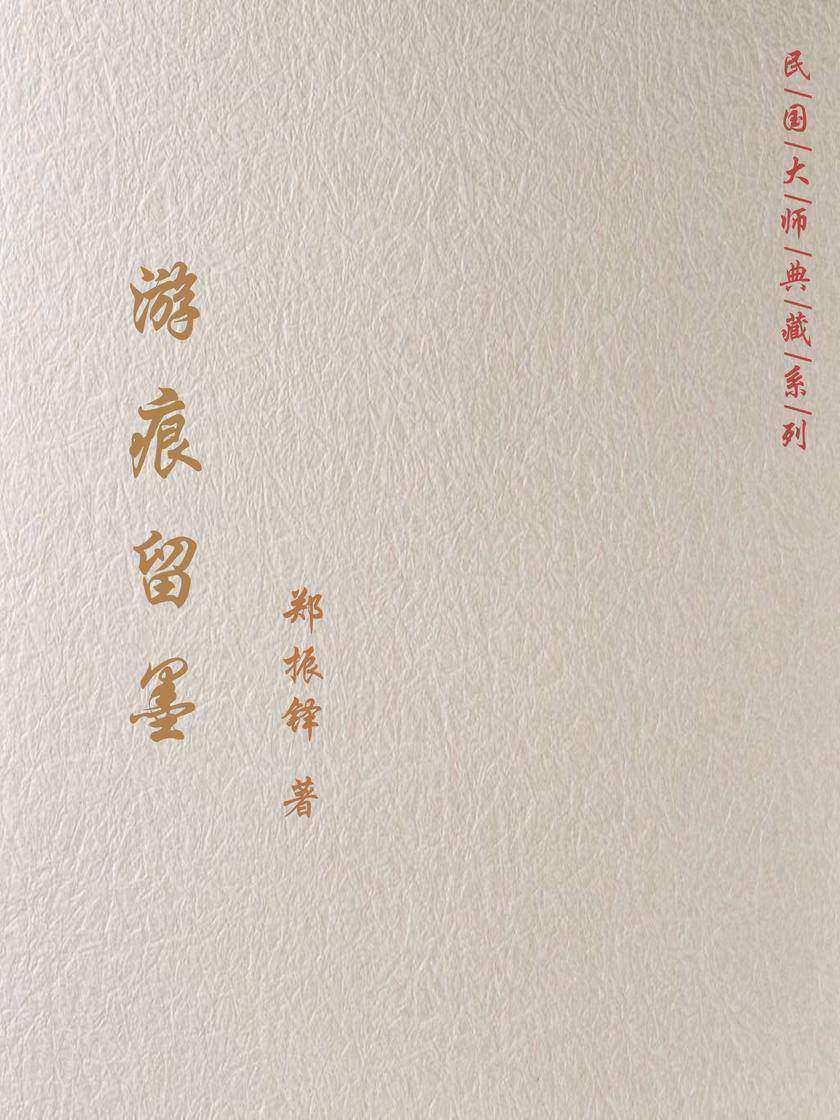 民/国/大/师/典/藏/系/列
游痕留墨
郑振铎 著